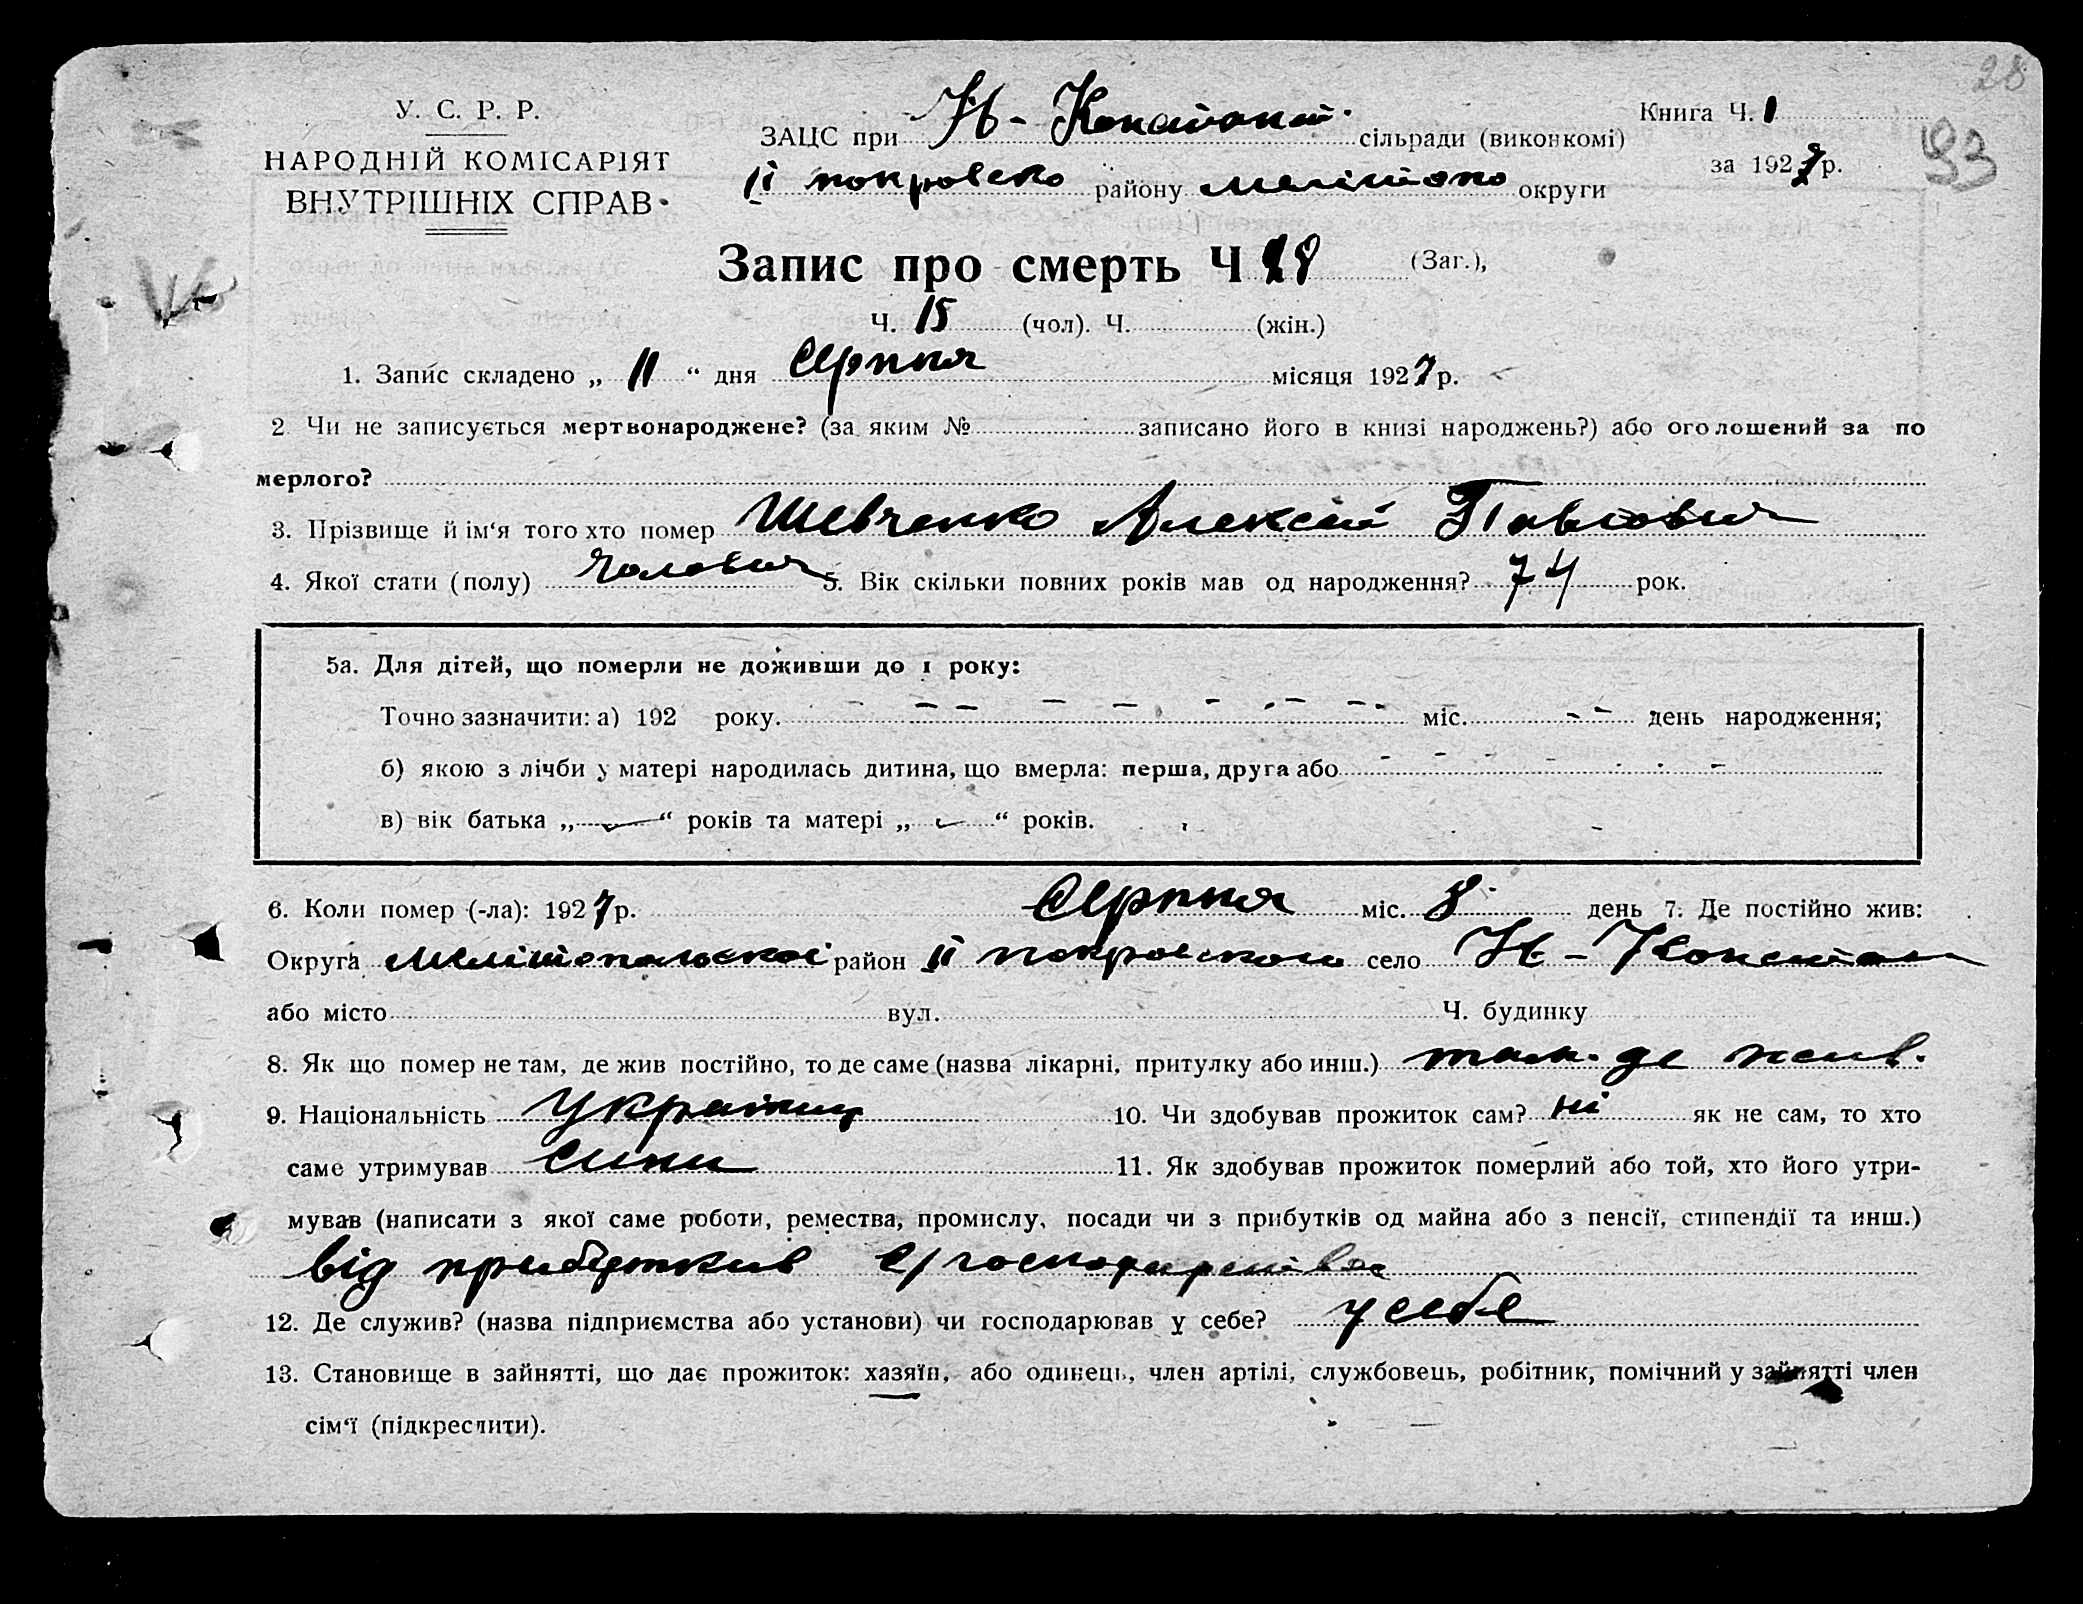 28
У. С. Р. Р.
НАРОДНІЙ КОМІСАРІЯТ
ВНУТРІШНІХ СПРАВ
ЗАЦС при Нв - Констант. сільради (виконкомі)
ІІ покровско району Мелітопо округи
Книга Ч. 1
за 1927 р.
93
Запис про смерть Ч 28 (Заг.),
Ч. 15 (чол). Ч. (жін.)
1. Запис складено „ 11 “ дня Серпня місяця 1927 р.
2 Чи не записується мертвонароджене? (за яким № записано його в книзі народжень?) або оголошений за по
мерлого?
3. Прізвище й ім‘я того хто помер Шевченко Алексій Павлович
4. Якої стати (полу) Чоловіч 5. Вік скільки повних років мав од народження? 74 рок.
5а. Для дітей, що померли не доживши до 1 року:
Точно зазначити: а) 192 року. міс. день народження;
б) якою з лічби у матері народилась дитина, що вмерла: перша, друга або
в) вік батька „ “ років та матері „ “ років.
6. Коли помер (-ла): 1927 р. Серпня міс. 8 день 7. Де постійно жив:
Округа Мелітопольскої район ІІ покровского село Нв - Констан
або місто вул. Ч. будинку
8. Як що помер не там, де жив постійно, то де саме (назва лікарні, притулку або инш.) там. де жив.
9. Національність Українц 10. Чи здобував прожиток сам? Ні як не сам, то хто
саме утримував Сини 11. Як здобував прожиток померлий або той, хто його утри-
мував (написати з якої саме роботи, ремества, промислу, посади чи з прибутків од майна або з пенсії, стипендії та инш.)
від прибутків с/господарства
12. Де служив? (назва підприємства або установи) чи господарював у себе? у себе
13. Становище в зайнятті, що дає прожиток: хазяїн, або одинець, член артілі, службовець, робітник, помічний у зайнятті член
сім‘ї (підкреслити).